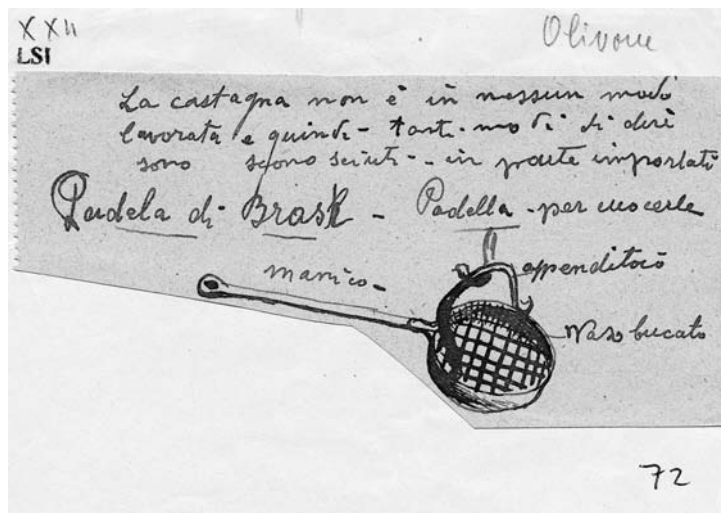 XXII
LSI
Olivone
La castagna non è in nessun modo
lavorata e quindi - tanti modi di dire
sono sconosciuti - in parte importati
Padela di Brask - Padella - per cuocerle
manico -
appenditoio
Vaso bucato
72